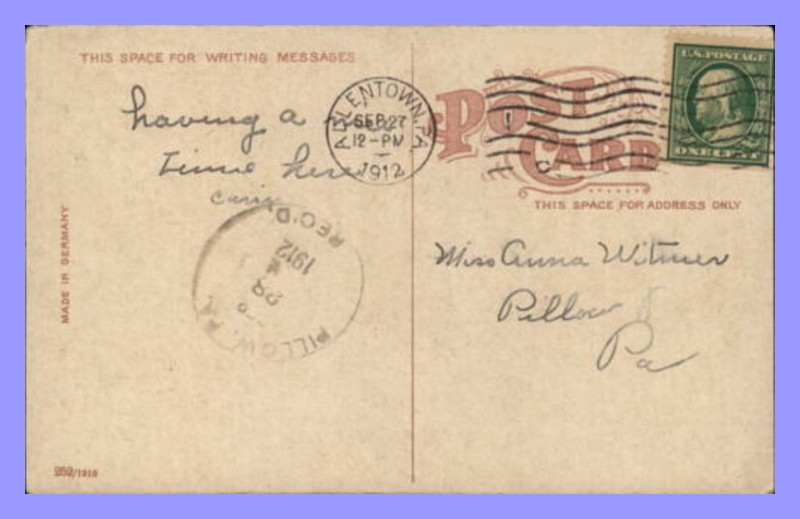 THIS SPACE FOR WRITING MESSAGES
having a
time here
ALLENTOWN, PA.
SEP 27
12-PM
1912
POST
CARD
U.S. POSTAGE
ONE CENT
THIS SPACE FOR ADDRESS ONLY
Miss Anna Witmer
Pillow
Pa
PILLOW, PA.
1912
REC'D.
MADE IN GERMANY
252/1910